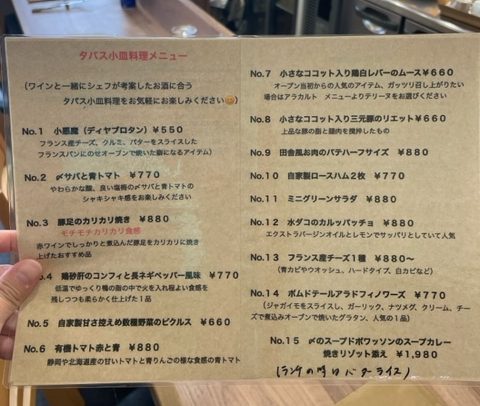 タパス小皿料理メニュー
(ワインと一緒にシェフが考案したお酒に合う
タパス小皿料理をお気軽にお楽しみください)
No.1 小悪魔(ディヤブロタン)￥550
フランス産チーズ、クルミ、バターをスライスした
フランスパンにのせオーブンで焼いた癖になるアイテム)
No.2 〆サバと青トマト ￥770
やわらかな酸、良い塩梅の〆サバと青トマトの
シャキシャキ感をお楽しみください
No.3 豚足のカリカリ焼き ￥880
モチモチカリカリ食感
赤ワインでしっかりと煮込んだ豚足をカリカリに焼き
上げたおすすめ品
No.4 鶏砂肝のコンフィと長ネギペッパー風味 ￥770
低温でゆっくり鴨の脂の中で火を入れ程よい食感を
残しつつも柔らかく仕上げた1品
No.5 自家製甘さ控えめ数種野菜のピクルス ￥660
No.6 有機トマト赤と青 ￥880
静岡や北海道産の甘いトマトと青りんごの様な食感の青トマト
No.7 小さなココット入り鶏白レバーのムース￥660
オープン当初からの人気のアイテム、ガッツリ召し上がりたい
場合はアラカルト メニューよりテリーヌをお選びください
No.8 小さなココット入り三元豚のリエット￥660
上品な豚の脂と腿肉を攪拌したもの
No.9 田舎風お肉のパテハーフサイズ ￥880
No.10 自家製ロースハム2枚 ￥770
No.11 ミニグリーンサラダ ￥880
No.12 水ダコのカルッパッチョ ￥880
エクストラバージンオイルとレモンでサッパリとしていて人気
No.13 フランス産チーズ1種 ￥880〜
(青カビやウオッシュ、ハードタイプ、白カビなど)
No.14 ポムドテールアラドフィノワーズ ￥770
(ジャガイモをスライスし、ガーリック、ナツメグ、クリーム、チー
ズで煮込みオーブンで焼いたグラタン、人気の1品)
No.15 〆のスープドポワッソンのスープカレー
焼きリゾット添え ￥1,980